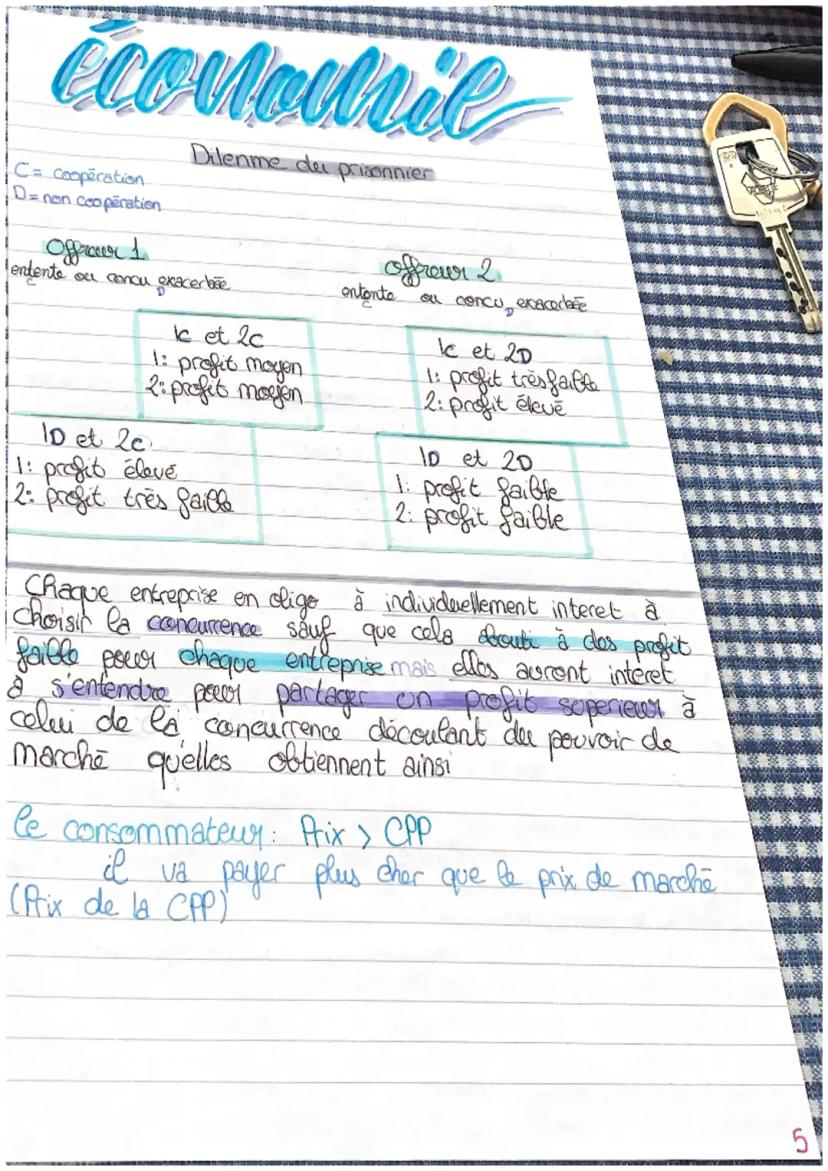 économie
Dilemme du prisonnier
C = coopération
D = non coopération
Offreur 1
entente ou concu exacerbée
D
offreur 2
entente ou concu exacerbée
D
1c et 2c
1: profit moyen
2: profit moyen
1c et 2D
1: profit très faible
2: profit élevé
1D et 2c
1: profit élevé
2: profit très faible
1D et 2D
1: profit faible
2: profit faible
Chaque entreprise en oligo à individuellement interet à
choisir la concurrence sauf que cela abouti à des profit
faible pour chaque entreprise mais elles auront interet
à s'entendre pour partager un profit superieur à
celui de la concurrence découlant du pouvoir de
marché qu'elles obtiennent ainsi
le consommateur : Prix > CPP
il va payer plus cher que le prix de marché
(Prix de la CPP)
5